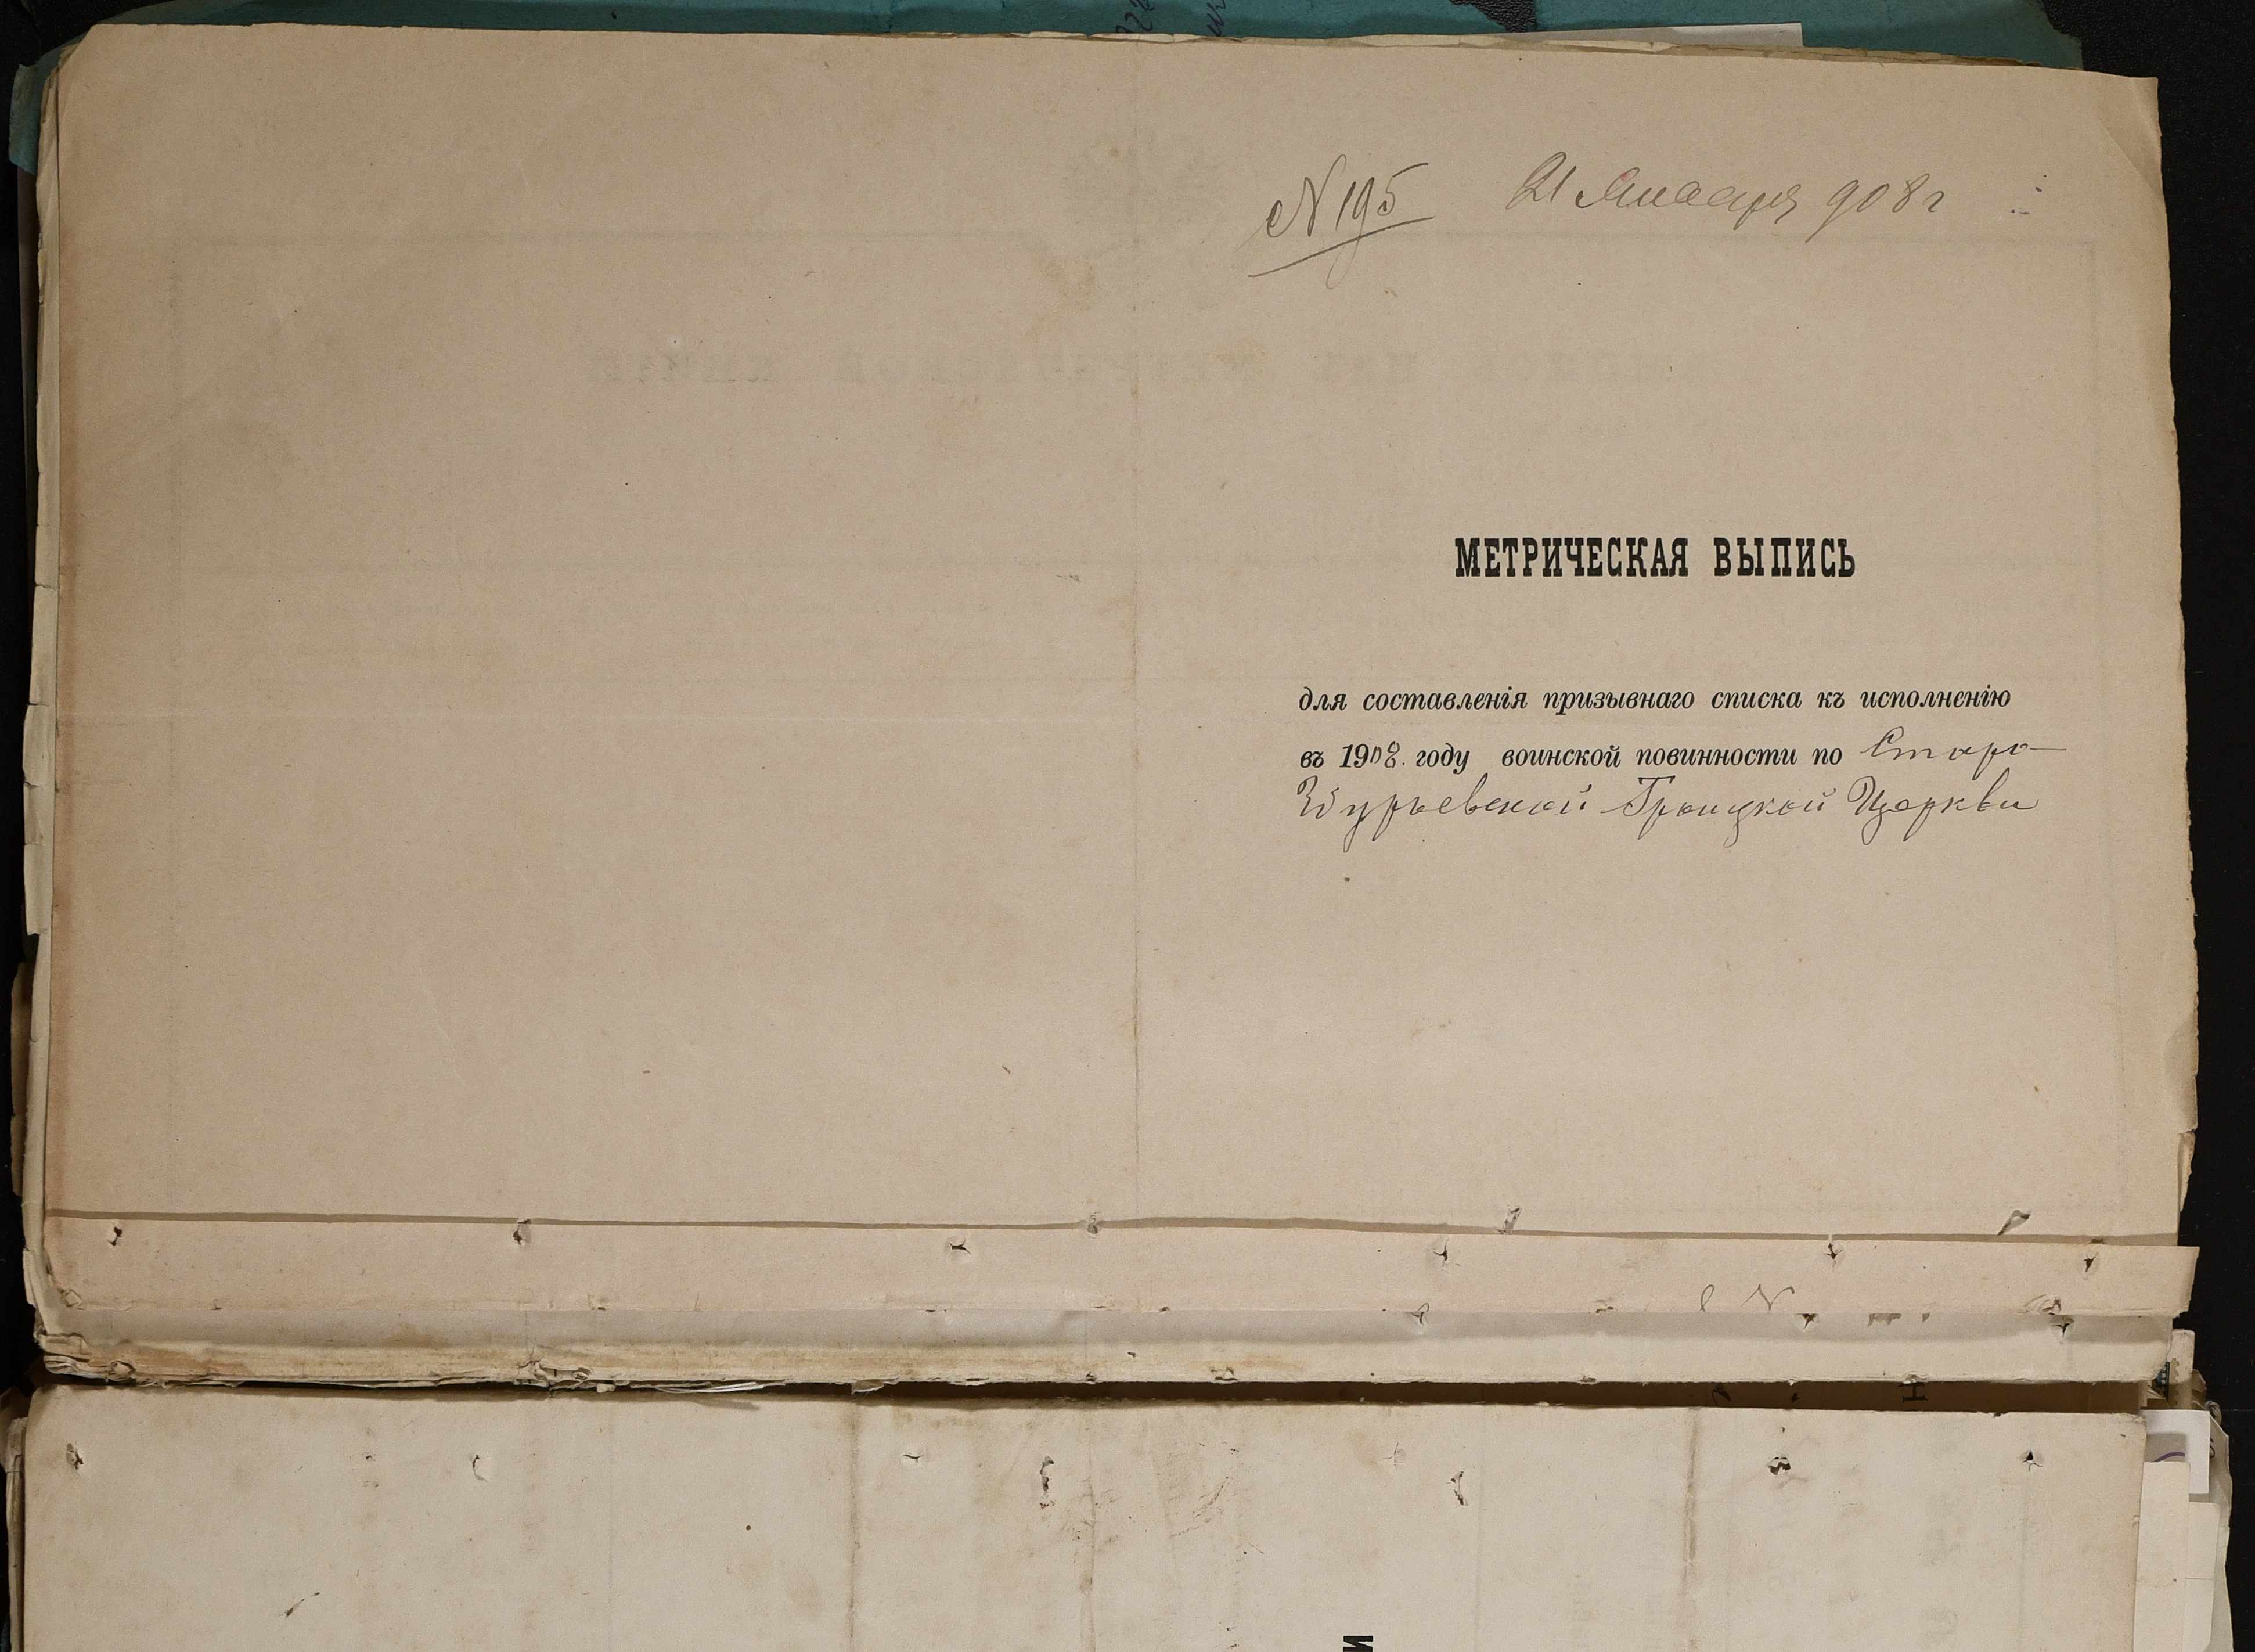 № 195 21 Января 908 г
МЕТРИЧЕСКАЯ ВЫПИСЬ
для составленія призывнаго списка къ исполненію
въ 1908. году воинской повинности по Старо-
Троицкой Церкви